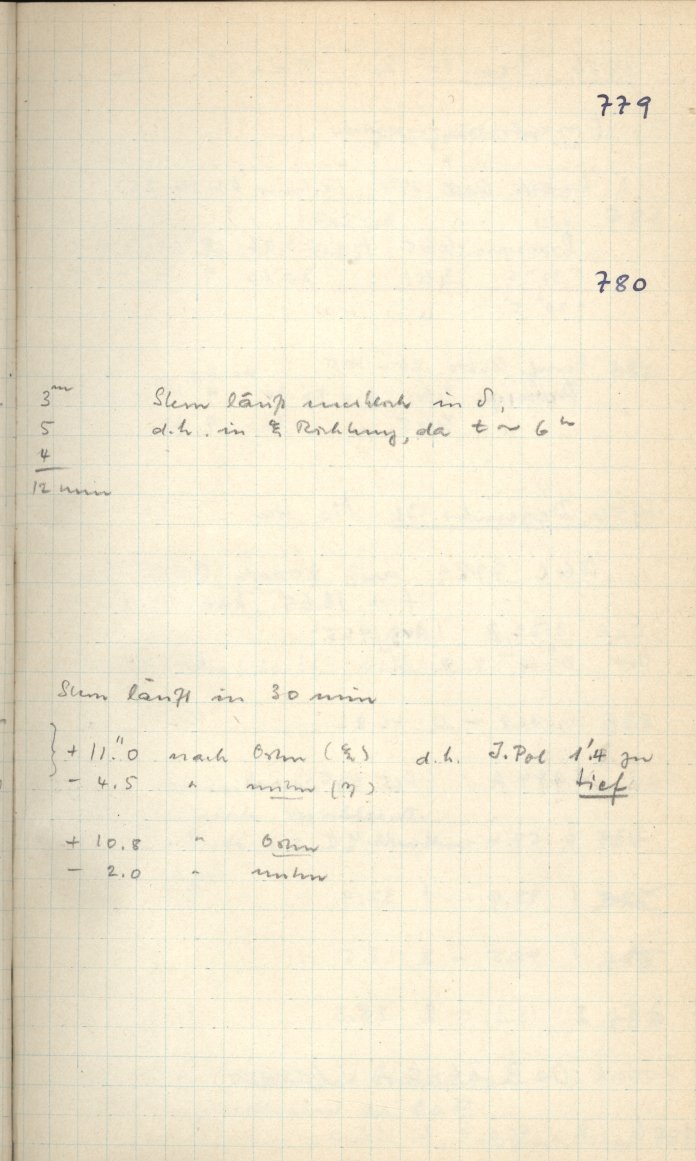 779
780
3ᵐ Stern läuft merklich in δ,
5 d.h. in ξ Richtung, da t ~ 6ʰ
4
12 min
Stern läuft in 30 min
+ 11."0 nach Osten (ξ) d.h. I. Pol 1'.4 zu
- 4.5 " unten (η) tief
+ 10.8 " Osten
- 2.0 " unten